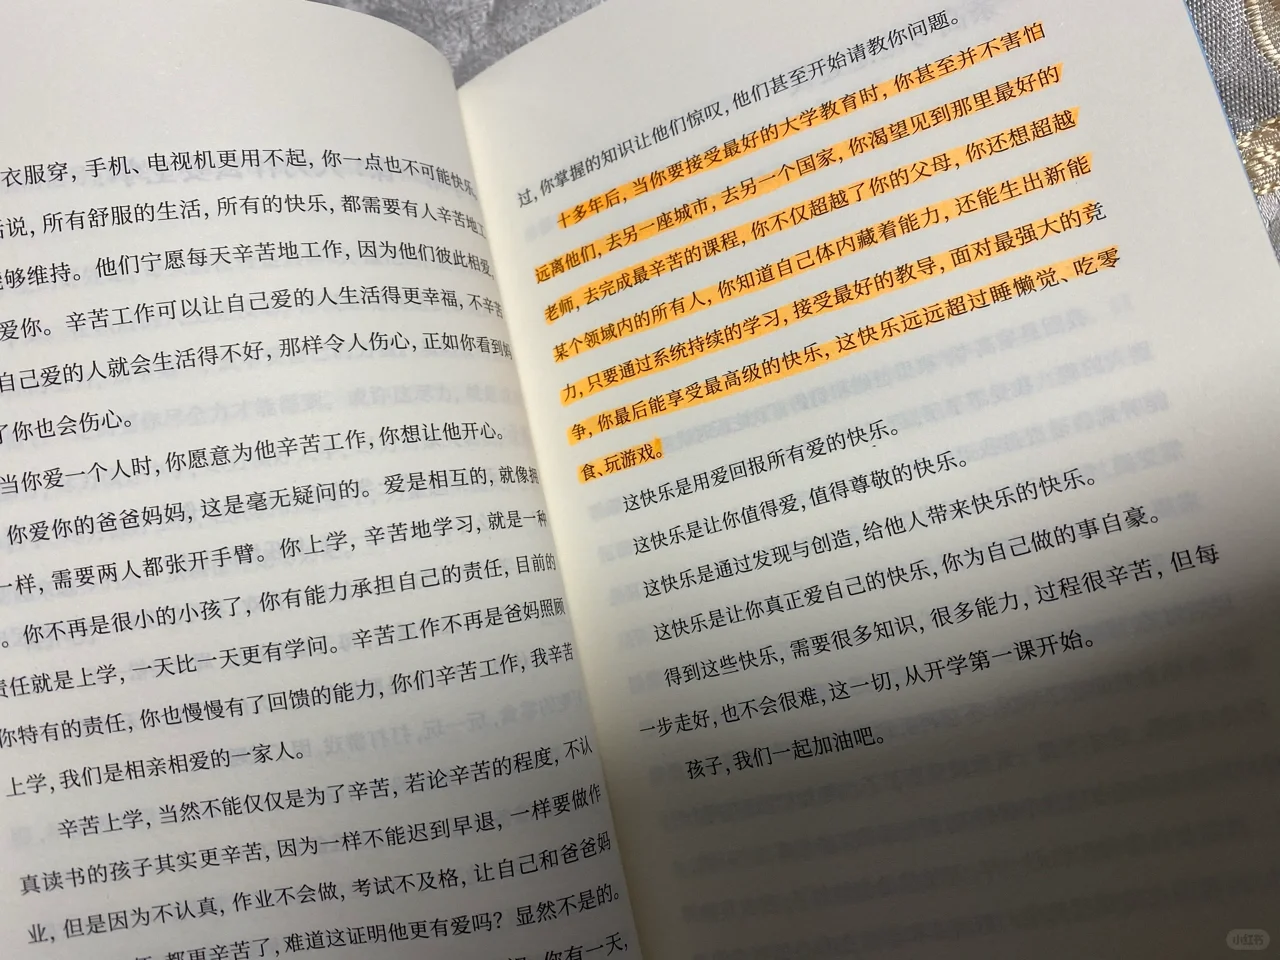 衣服穿，手机、电视机更用不起，你一点也不可能快乐。
话说，所有舒服的生活，所有的快乐，都需要有人辛苦地工
能够维持。他们宁愿每天辛苦地工作，因为他们彼此相爱，
爱你。辛苦工作可以让自己爱的人生活得更幸福，不辛苦
自己爱的人就会生活得不好，那样令人伤心，正如你看到妈
了你也会伤心。
当你爱一个人时，你愿意为他辛苦工作，你想让他开心。
你爱你的爸爸妈妈，这是毫无疑问的。爱是相互的，就像拥
一样，需要两人都张开手臂。你上学，辛苦地学习，就是一种
。你不再是很小的小孩了，你有能力承担自己的责任，目前的
责任就是上学，一天比一天更有学问。辛苦工作不再是爸妈照顾
你特有的责任，你也慢慢有了回馈的能力，你们辛苦工作，我辛苦
上学，我们是相亲相爱的一家人。
辛苦上学，当然不能仅仅是为了辛苦，若论辛苦的程度，不认
真读书的孩子其实更辛苦，因为一样不能迟到早退，一样要做作
业，但是因为不认真，作业不会做，考试不及格，让自己和爸爸妈
都更辛苦了，难道这证明他更有爱吗？显然不是的。
你有一天，
过，你掌握的知识让他们惊叹，他们甚至开始请教你问题。
十多年后，当你要接受最好的大学教育时，你甚至并不害怕
远离他们，去另一座城市，去另一个国家，你渴望见到那里最好的
老师，去完成最辛苦的课程，你不仅超越了你的父母，你还想超越
某个领域内的所有人，你知道自己体内藏着能力，还能生出新能
力，只要通过系统持续的学习，接受最好的教导，面对最强大的竞
争，你最后能享受最高级的快乐，这快乐远远超过睡懒觉、吃零
食、玩游戏。
这快乐是用爱回报所有爱的快乐。
这快乐是让你值得爱，值得尊敬的快乐。
这快乐是通过发现与创造，给他人带来快乐的快乐。
这快乐是让你真正爱自己的快乐，你为自己做的事自豪。
得到这些快乐，需要很多知识，很多能力，过程很辛苦，但每
一步走好，也不会很难，这一切，从开学第一课开始。
孩子，我们一起加油吧。
小红书